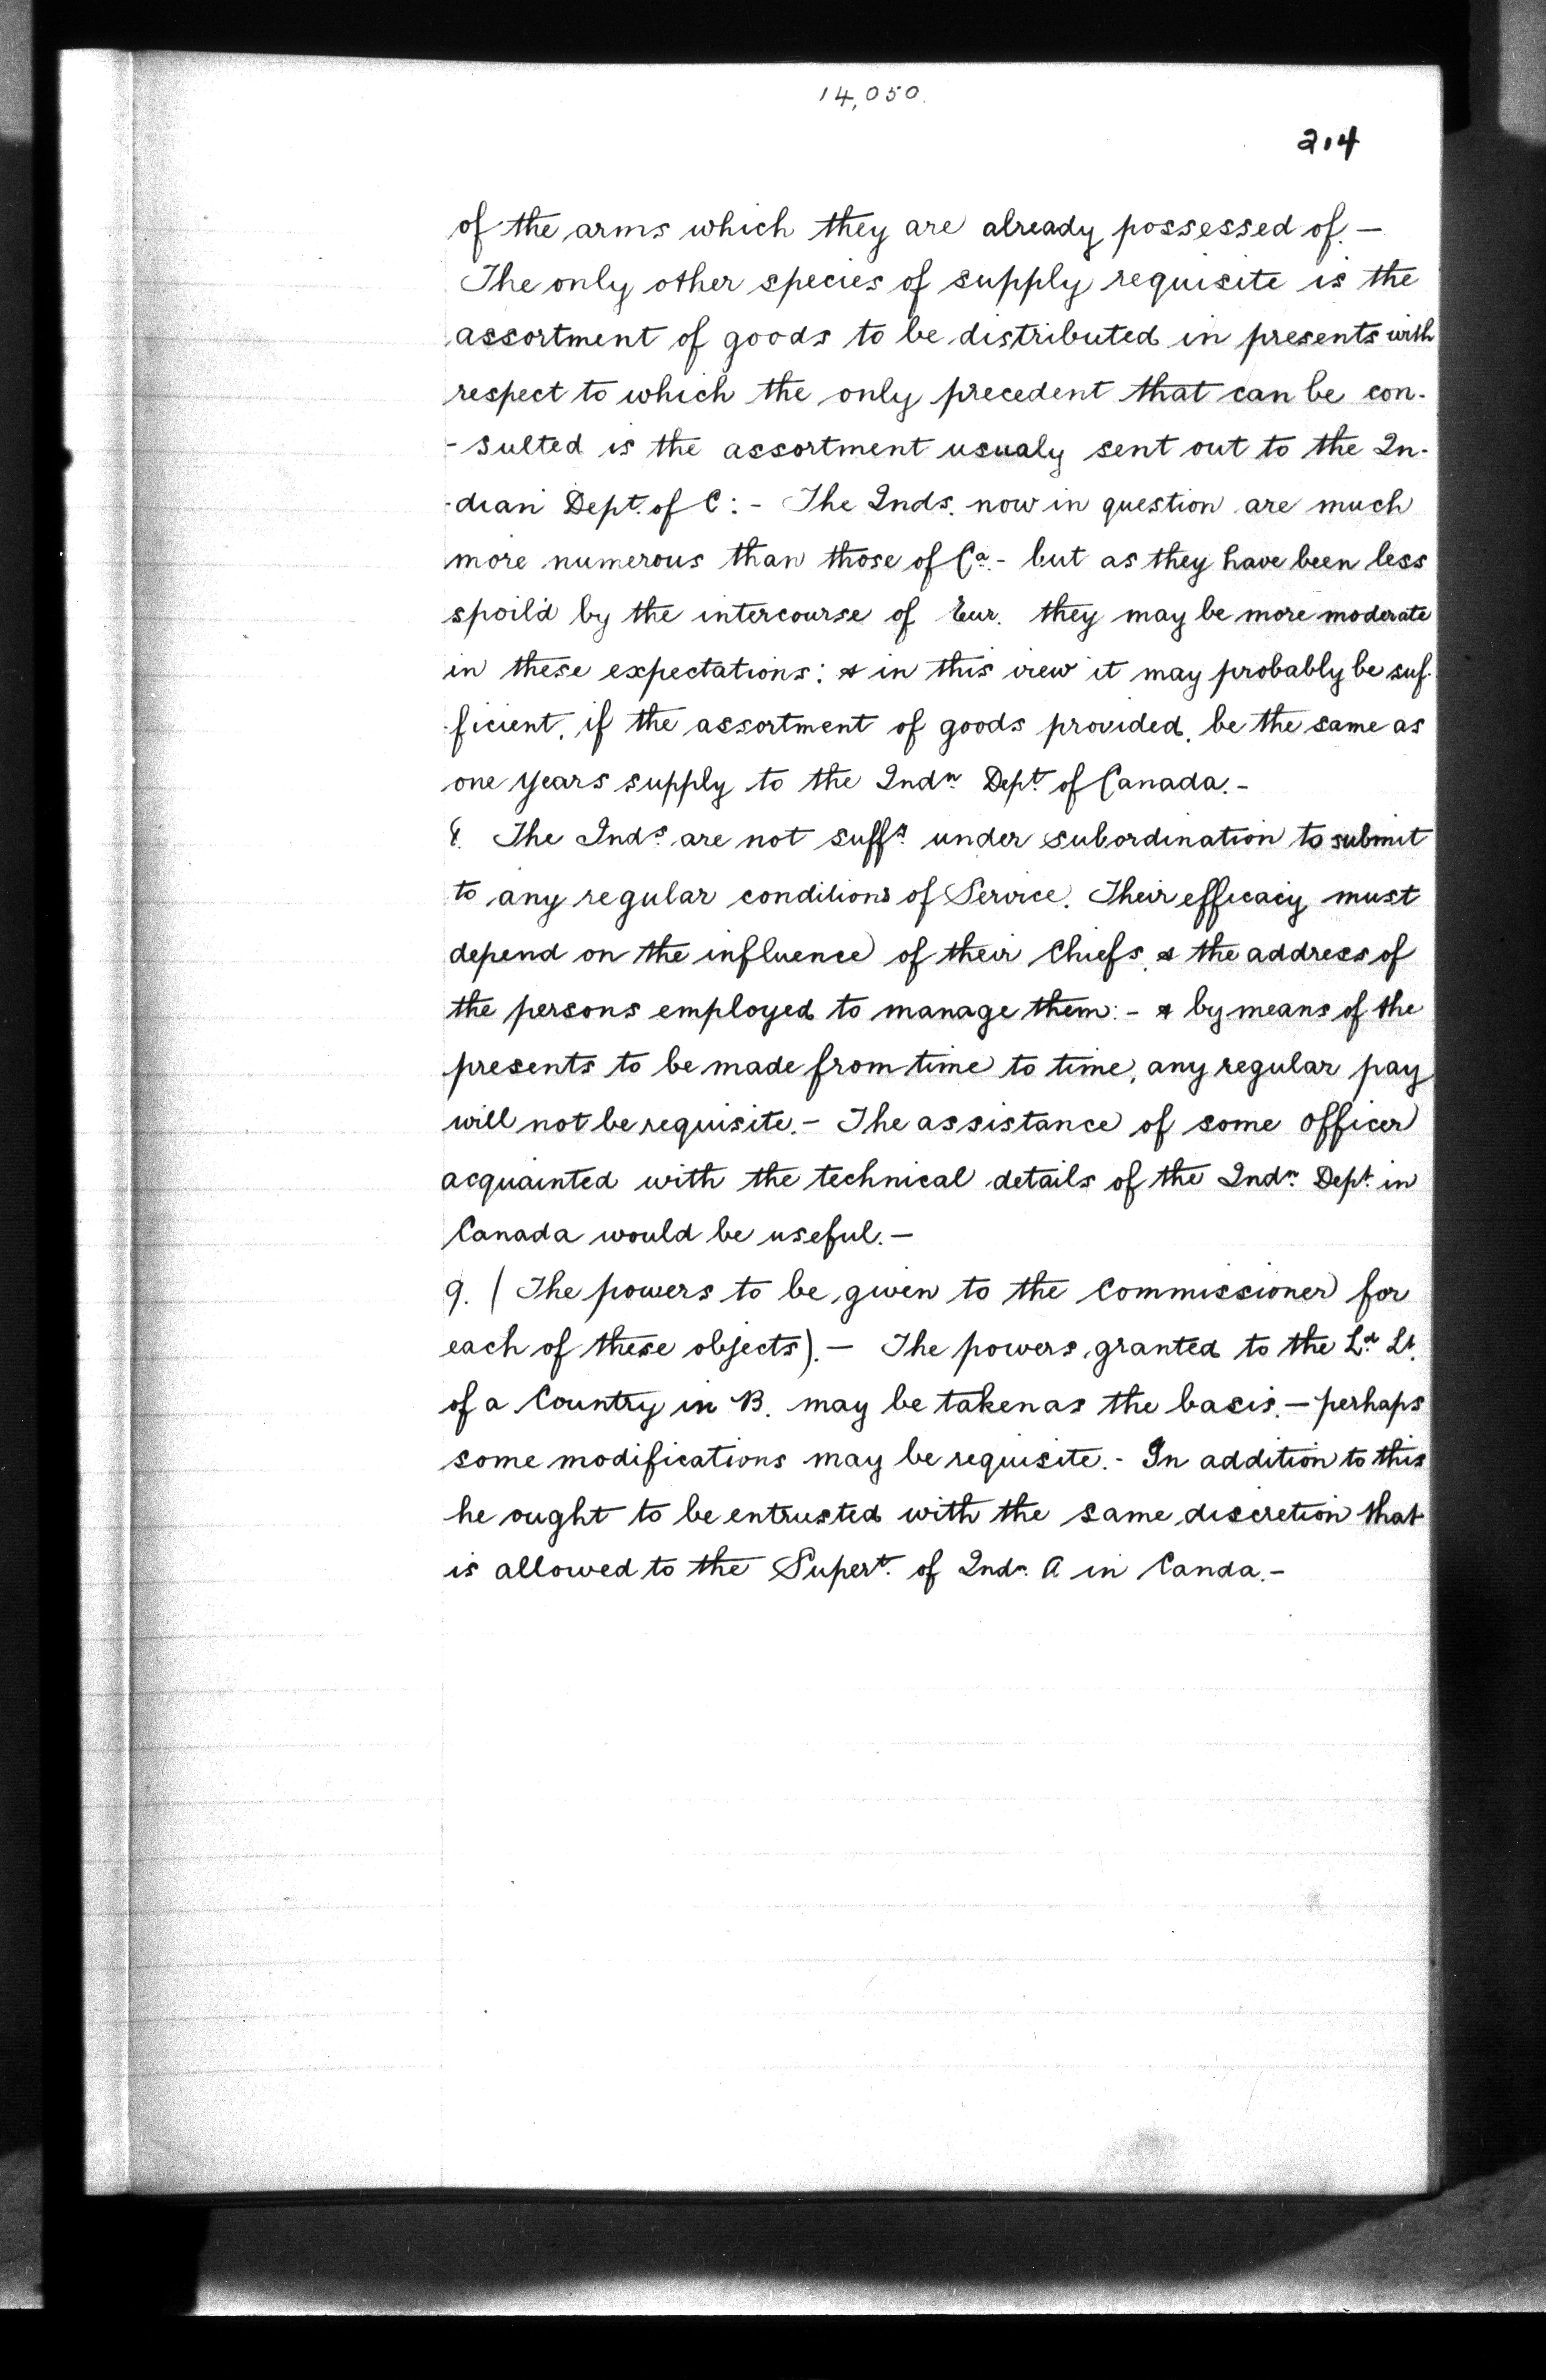 14,050.
214
of the arms which they are already possessed of. —
The only other species of supply requisite is the
assortment of goods to be distributed in presents with
respect to which the only precedent that can be con-
-sulted is the assortment usualy sent out to the In-
-dian Dept. of C: - The Inds. now in question are much
more numerous than those of Ca. - but as they have been less
spoil'd by the intercourse of Eur. they may be more moderate
in these expectations: & in this view it may probably be suf-
-ficient, if the assortment of goods provided, be the same as
one years supply to the Indn. Dept. of Canada. -
8. The Inds. are not sufft. under subordination to submit
to any regular conditions of Service. Their efficacy must
depend on the influence of their Chiefs, & the address of
the persons employed to manage them: - & by means of the
presents to be made from time to time, any regular pay
will not be requisite. - The assistance of some officer
acquainted with the technical details of the Indn. Dept. in
Canada would be useful. —
9. (The powers to be given to the Commissioner for
each of these objects). — The powers granted to the Ld. Lt.
of a Country in B. may be taken as the basis. — perhaps
some modifications may be requisite. - In addition to this
he ought to be entrusted with the same discretion that
is allowed to the Supert. of Indn. A in Canda. -